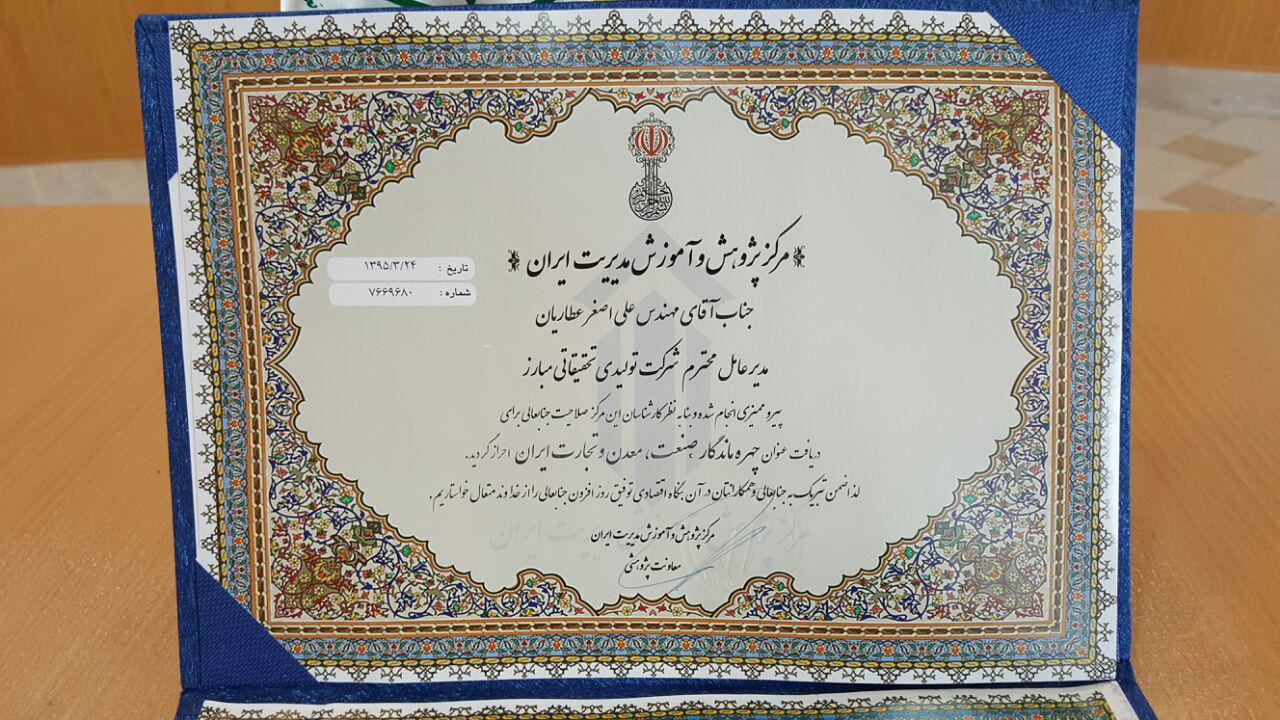 مرکز پژوهش و آموزش مدیریت ایران
تاریخ : ۱۳۹۵/۳/۲۴
شماره : ۷۶۶۹۶۸۰
جناب آقای مهندس علی اصغر عطاریان
مدیر عامل محترم شرکت تولیدی تحقیقاتی مبارز
پیرو ممیزی انجام شده و بنا به نظر کارشناسان این مرکز صلاحیت جنابعالی برای
دریافت عنوان چهره ماندگار صنعت، معدن و تجارت ایران احراز گردید.
لذا ضمن تبریک به جنابعالی و همکارانتان در آن بنگاه اقتصادی توفیق روز افزون جنابعالی را از خداوند متعال خواستاریم.
مرکز پژوهش و آموزش مدیریت ایران
معاونت پژوهشی